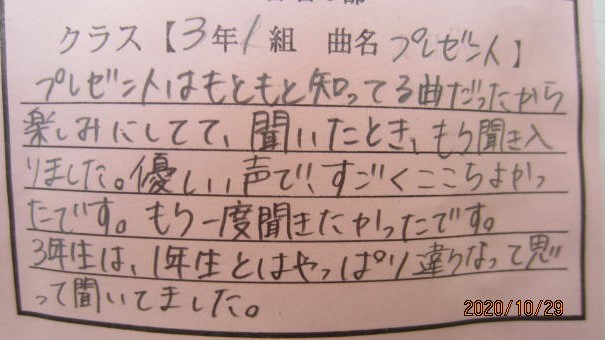 クラス【3年1組 曲名 プレゼント】
プレゼントはもともと知ってる曲だったから
楽しみにしてて、聞いたとき、もう聞き入
りました。優しい声で、すごくここちよかっ
たです。もう一度聞きたかったです。
3年生は、1年生とはやっぱり違うなって思
って聞いてました。
2020/10/29